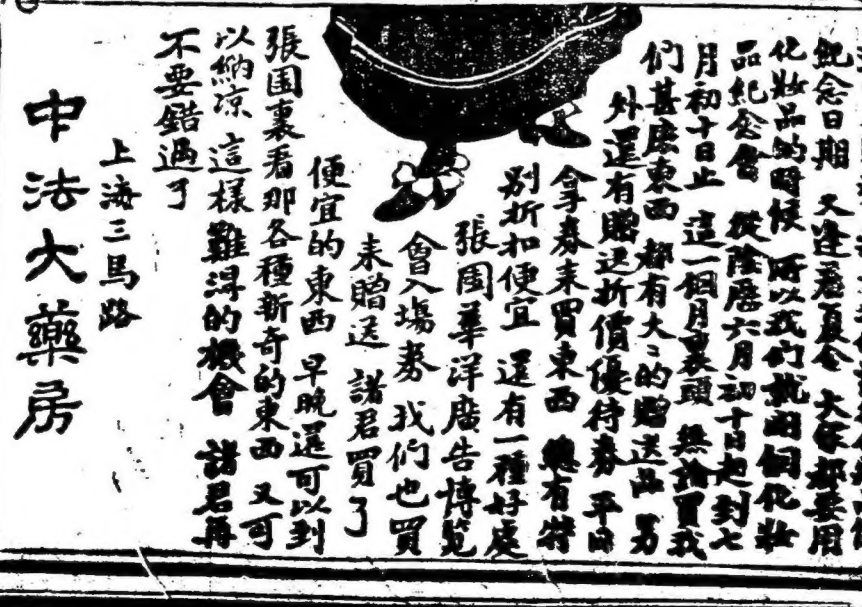 紀念日期　又逢着夏令　大家都要用
化妝品的時候　所以我们就開個化妝
品紀念會　從陰曆六月初十日起到七
月初十日止　這一個月裏頭　無論買我
们甚麽東西　都有大〻的贈送品　另
外還有贈送折價優待券　平日
拿券来買東西　總有特
别折扣便宜　還有一種好處
張園華洋廣告博覧
會入塲券　我们也買
来贈送　諸君買了
便宜的東西　早晚還可以到
張園裏看那各種新奇的東西　又可
以納凉　這樣難淂的機會　諸君再
不要錯過了
上海三馬路
中法大藥房